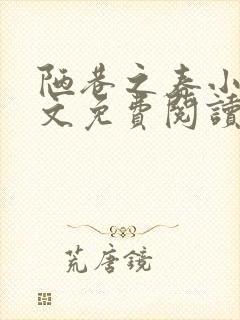 陋巷之春小
文免費閱讀
荒唐鏡